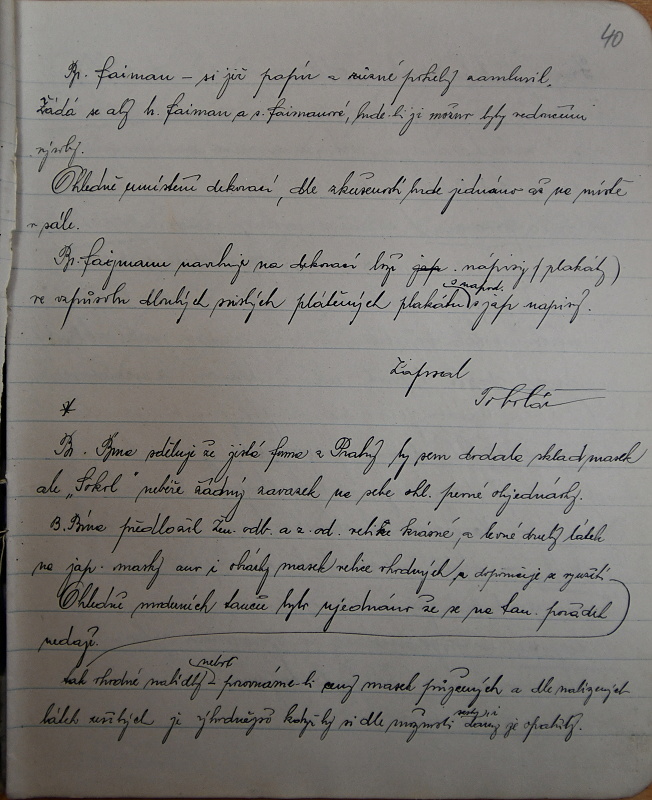 40
Br. Faiman – si již papír a různé potřeby zamluvil.
Žádá se aby b. Faiman a s. Faimanové, bude-li ji možno byly vedoucími
výzdoby.
Ohledně umístění dekorací, dle zkušeností bude jednáno až na místě
v sále.
Br. Faijmann navrhuje na dekoraci býti jap. nápisy (plakáty)
ve způsobu dlouhých svislých plátěných plakátů s napod. jap nápisy.
Zapsal
*
Br. Brna sděluje že jistá firma z Prahy by sem dodala sklad masek
ale „Sokol" nebéře žádný zavazek na sebe ohl. pevné objednávky.
B. Brna předložil žen. odb. a z. od. velice krásné, a levné druhy látek
na jap. masky a i obrázky masek velice vhodných a doporučuje se využíti
Ohledně moderních tanců bylo ujednáno že se na tan. pořádek
nedají.
tak vhodné nabídky – neboť porovnáme-li ceny masek půjčených a dle nabízených
látek ušitých je výhodnější když by si dle možnosti sestry je opatřily.